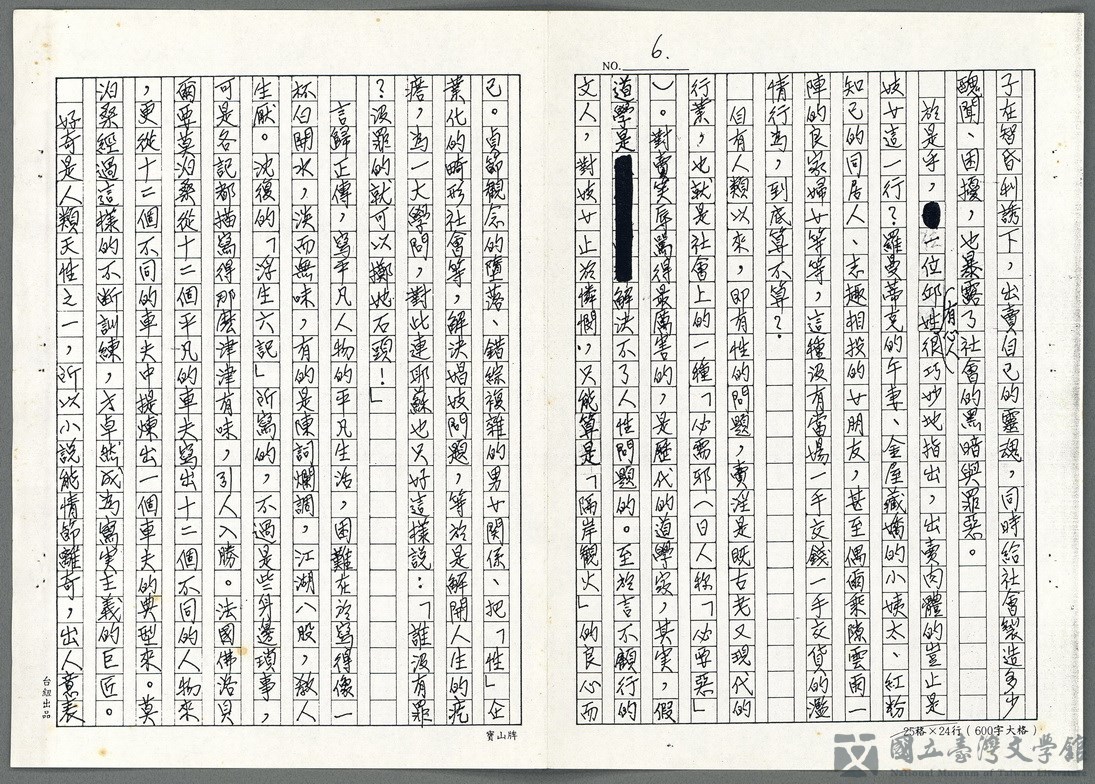 NO. 6.
子在智昏利誘下，出賣自己的靈魂，同時給社會製造多少
醜聞、困擾，也暴露了社會的黑暗與罪惡。
於是乎，一位邱姓有心人很巧妙地指出，出賣肉體的豈止是
妓女這一行？羅曼蒂克的午妻、金屋藏嬌的小姨太、紅粉
知己的同居人、志趣相投的女朋友，甚至偶爾乘隙雲雨一
陣的良家婦女等等，這種沒有當場一手交錢一手交貨的濫
情行為，到底算不算？
自有人類以來，即有性的問題，賣淫是既古老又現代的
行業，也就是社會上的一種「必需邪（日人称「必要惡」
）。對賣笑辱罵得最厲害的，是歷代的道學家，其实，假
道學是解決不了人性問題的。至於言不顧行的
文人，對妓女止於憐憫，只能算是「隔岸觀火」的良心而
已。貞節觀念的墮落、錯綜複雜的男女關係、把「性」企
業化的畸形社會等，解決娼妓問題，等於是解開人生的疙
瘩，為一大學問，對此連耶蘇也只好這樣說：「誰沒有罪
？沒罪的就可以擲她石頭！」
言歸正傳，寫平凡人物的平凡生活，困難在於寫得像一
杯白開水，淡而無味，有的是陳詞爛調，江湖八股，教人
生厭。沈復的「浮生六記」所寫的，不過是些身邊瑣事，
可是各記都描寫得那麼津津有味，引人入勝。法國佛洛貝
爾要莫泊桑從十二個平凡的車夫寫出十二個不同的人物來
，更從十二個不同的車夫中提煉出一個車夫的典型來。莫
泊桑經過這樣的不斷訓練，才卓然成為寫实主義的巨匠。
好奇是人類天性之一，所以小説能情節離奇，出人意表
台紐出品
寶山牌
25格×24行（600字大格）
國立臺灣文學館
National Museum of Taiwan Literature